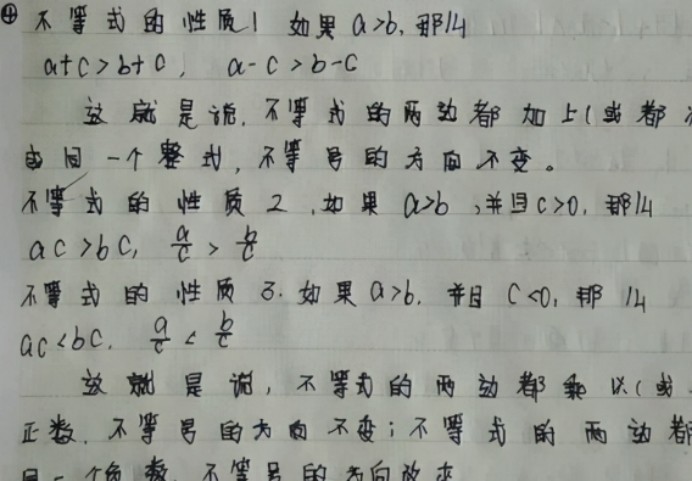 ⊕ 不等式的性质1 如果a>b,那么
a+c>b+c, a-c>b-c
这就是说,不等式的两边都加上(或都
或同一个整式,不等号的方向不变。
不等式的性质2,如果a>b,并且c>0,那么
ac>bc, a/c > b/c
不等式的性质3.如果a>b.并且c<0,那么
ac<bc. a/c < b/c
这就是说,不等式的两边都乘以(或
正数.不等号的方向不变;不等式的两边都
同一个负数,不等号的方向改变